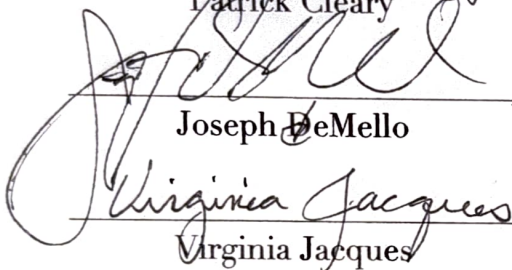 Patrick Cleary
Joseph DeMello
Virginia Jacques
Virginia Jacques